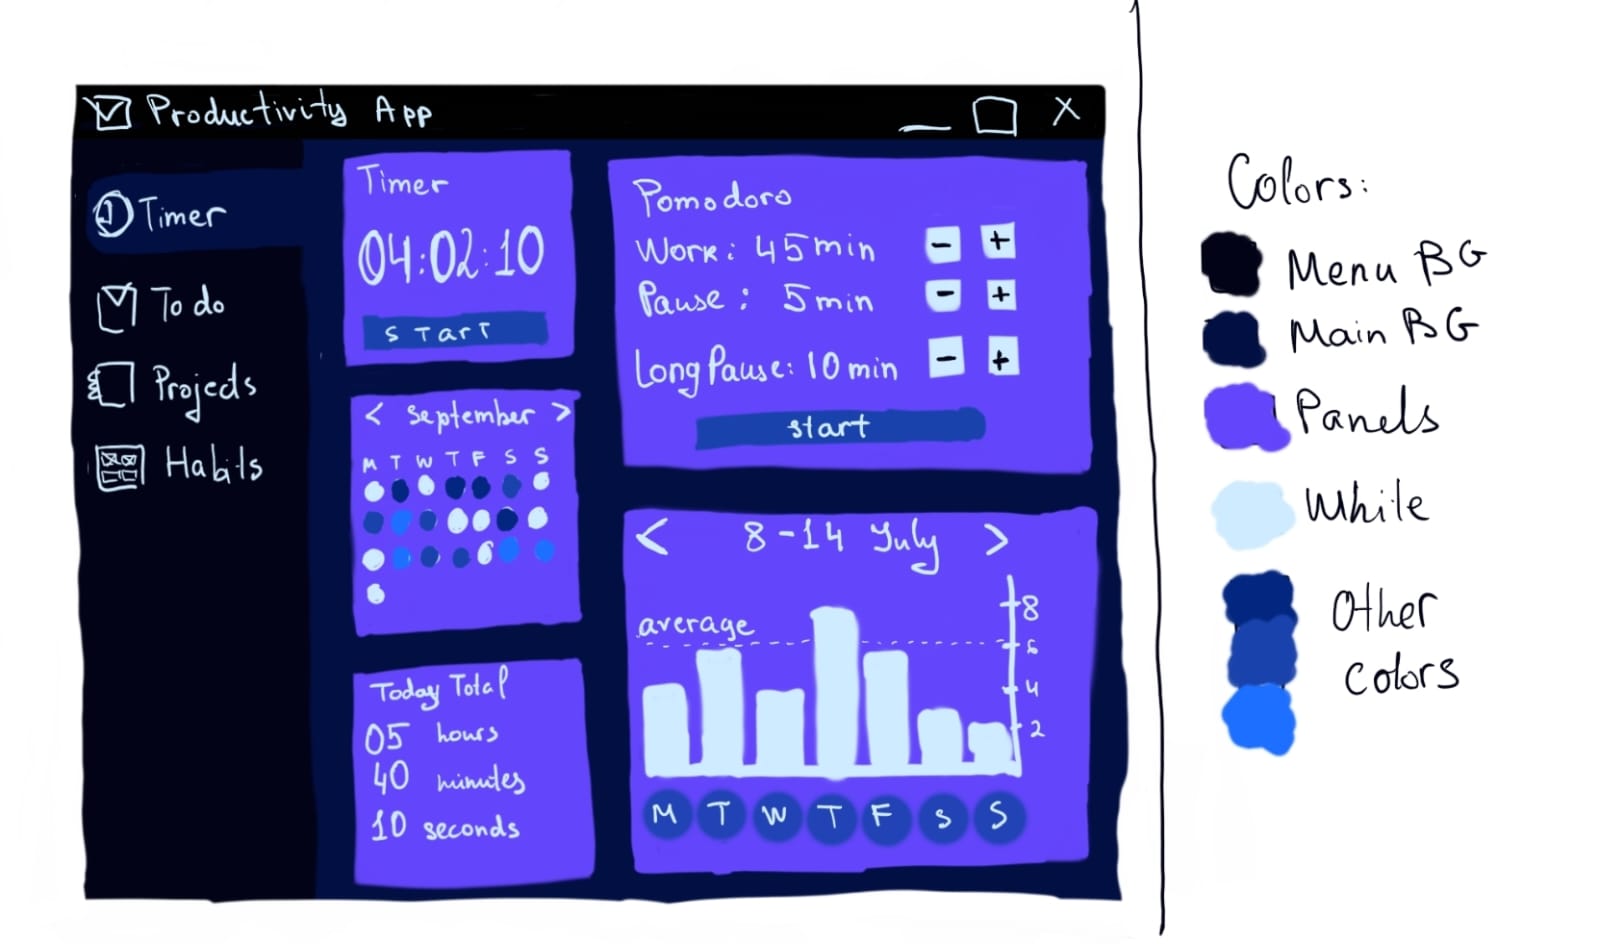 Productivity App
Timer
To do
Projects
Habits
Timer
04:02:10
START
< September >
M T W T F S S
Today Total
05 hours
40 minutes
10 seconds
Pomodoro
Work: 45 min - +
Pause: 5 min - +
Long Pause: 10 min - +
start
< 8-14 July >
average
8
6
4
2
M T W T F S S
Colors:
Menu BG
Main BG
Panels
White
Other
colors